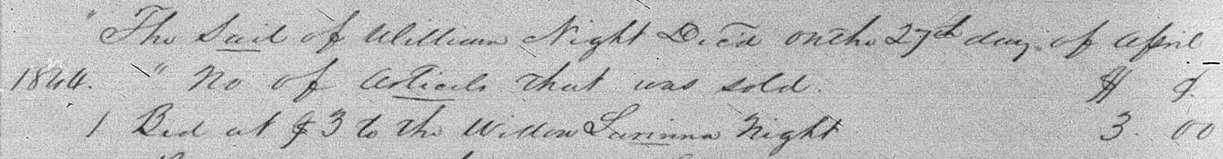 " The Sail of William Night Dec'd on the 27th day of April
1844. " No of Articals that was sold. $ ¢
1 Bed at $3 to the Widow Lavinna Night 3. 00